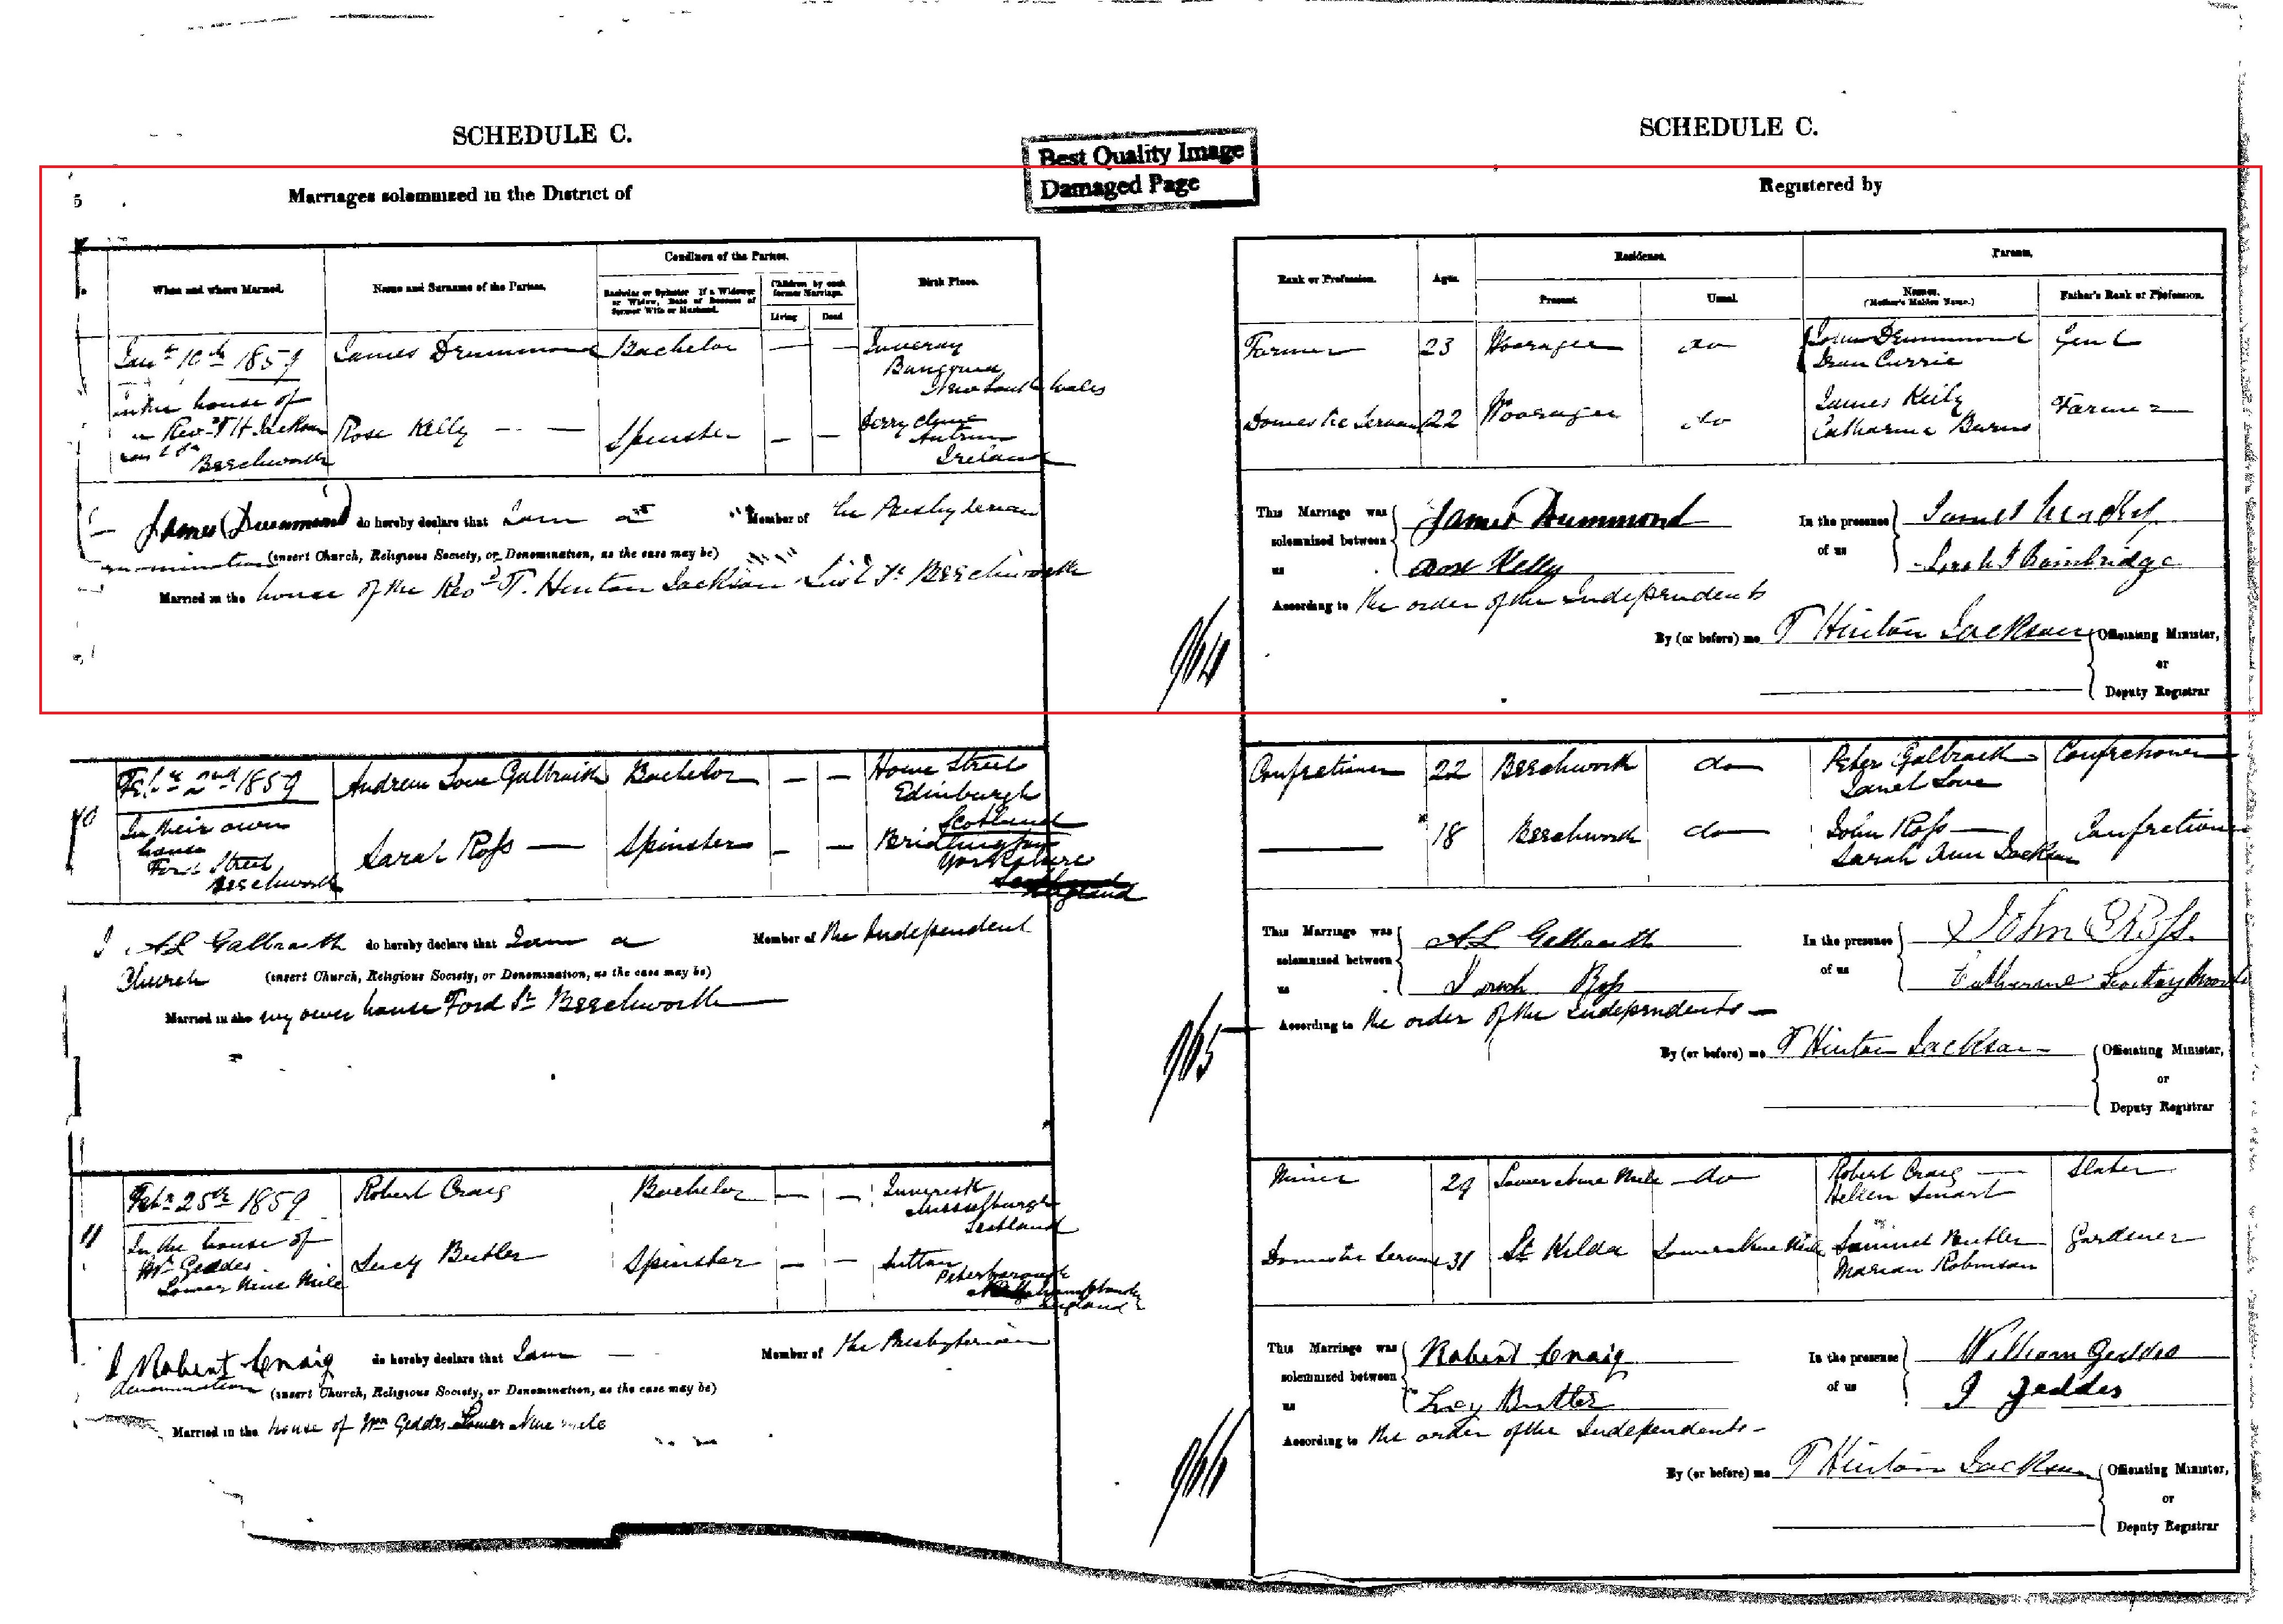 SCHEDULE C.
SCHEDULE C.
Best Quality Image
Damaged Page
5
Marriages solemnized in the District of
Registered by
When and where Married.
Name and Surname of the Parties.
Condition of the Parties.
Bachelor or Spinster If a Widower or Widow, Date of Decease of former Wife or Husband.
Children by each former Marriage.
Living
Dead
Birth Place.
Rank or Profession.
Ages.
Residence.
Present.
Usual.
Parents.
Names.
(Mother's Maiden Name.)
Father's Rank or Profession.
1859
James Drummond
Bachelor
— —
New South Wales
Farmer
23
do
John Drummond
Jean Currie
Gent
in the house of
Rev T H Jackson
Beechworth
Rose Kelly
Spinster
— —
Antrim
Ireland
Domestic Servant
22
do
James Kelly
Catharine Burns
Farmer
James Drummond do hereby declare that I am a Member of the Presbyterian
(insert Church, Religious Society, or Denomination, as the case may be)
Married in the house of the Revd T. Hinton Jackson Beechworth
This Marriage was solemnized between us
James Drummond
Rose Kelly
In the presence of us
Sarah Bainbridge
According to the order of the Independents
By (or before) me T Hinton Jackson Officiating Minister,
or
Deputy Registrar
964
10
Feby 2nd 1859
In their own
house
Ford Street
Beechworth
Andrew Love Galbraith
Bachelor
— —
Howe Street
Edinburgh
Scotland
Confectioner
22
Beechworth
do
Peter Galbraith
Janet Love
Confectioner
Sarah Ross
Spinster
— —
Bridlington
Yorkshire
England
18
Beechworth
do
John Ross
Sarah Ann Jackson
Confectioner
I A L Galbraith do hereby declare that I am a Member of the Independent
Church (insert Church, Religious Society, or Denomination, as the case may be)
Married in the my own house Ford St Beechworth
This Marriage was solemnized between us
A L Galbraith
Sarah Ross
In the presence of us
John Ross.
Catherine
According to the order of the Independents
By (or before) me T Hinton Jackson Officiating Minister,
or
Deputy Registrar
965
11
Feby 25th 1859
In the house of
Mr Geddes
Lower Nine Mile
Robert Craig
Bachelor
— —
Inveresk
Musselburgh
Scotland
Miner
29
Lower Nine Mile
do
Robert Craig
Hellen Smart
Slater
Lucy Butler
Spinster
— —
Sutton
Peterborough
England
Domestic Servant
31
St Kilda
Lower Nine Mile
Samuel Butler
Marian Robinson
Gardener
I Robert Craig do hereby declare that I am Member of the Presbyterian
denomination (insert Church, Religious Society, or Denomination, as the case may be)
Married in the house of Wm Geddes Lower Nine mile
This Marriage was solemnized between us
Robert Craig
Lucy Butler
In the presence of us
William Geddes
J Geddes
According to the order of the Independents
By (or before) me T Hinton Jackson Officiating Minister,
or
Deputy Registrar
966